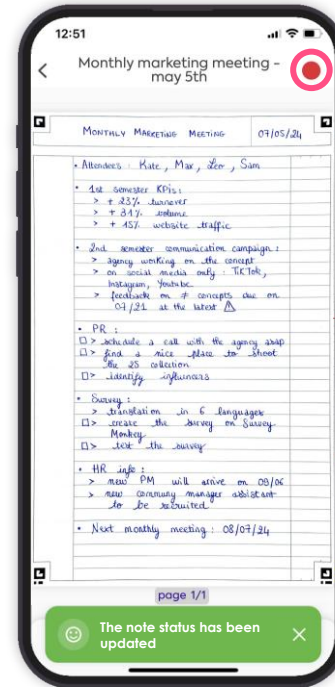 12:51
Monthly marketing meeting -
may 5th
MONTHLY MARKETING MEETING 07/05/24
• Attendees : Kate, Max, Leo, Sam
• 1st semester KPIs :
> + 23% turnover
> + 31% volume
> + 45% website traffic
• 2nd semester communication campaign :
> agency working on the concept
> on social media only : TikTok,
Instagram, Youtube.
> feedback on ≠ concepts due on
at the latest ⚠
• PR :
□> schedule a call with the agency asap
□> find a nice place to shoot
the 25 collection
□> identify influencers
• Survey :
> translation in 6 languages
□> create the survey on Survey
Monkey
□> test the survey
• HR info :
> new PM will arrive on 09/06
> new manager assistant
to be recruited
• Next monthly meeting : 08/07/24
page 1/1
The note status has been
updated